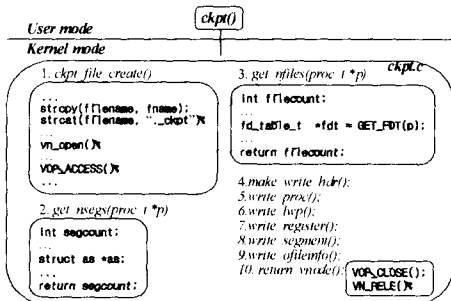 ckpt()
User mode
Kernel mode
ckpt.c
1. ckpt_file_create()
...
strcpy(filename, fname);
strcat(filename, "._ckpt")
...
vn_open()
...
VOP_ACCESS()
...
2. get_nsegs(proc_t *p)
int segcount;
...
struct as *as;
...
return segcount;
3. get_nfiles(proc_t *p)
int filecount;
...
fd_table_t *fdt = GET_FDT(p);
...
return filecount;
4.make_write_hdr();
5.write_proc();
6.write_lwp();
7.write_register();
8.write_segment();
9.write_ofileinfo();
10. return_vnode();
VOP_CLOSE();
VN_RELE()